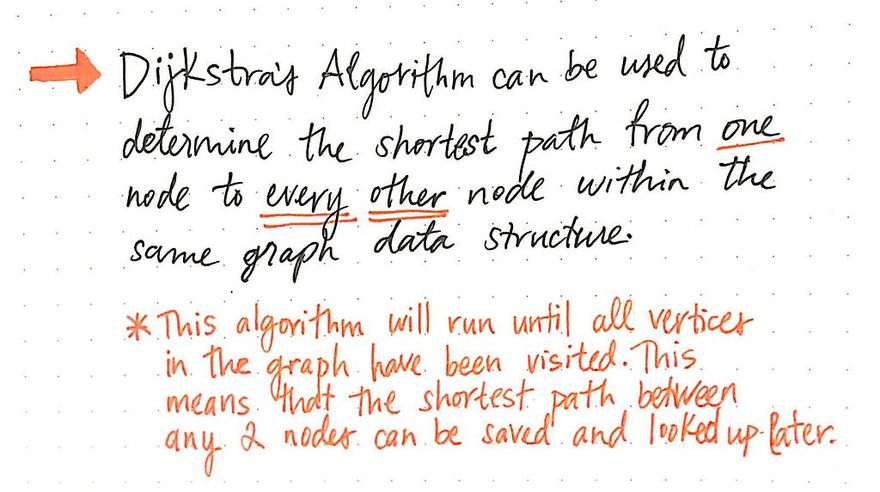 Dijkstra's Algorithm can be used to
determine the shortest path from one
node to every other node within the
same graph data structure.
* This algorithm will run until all vertices
in the graph have been visited. This
means that the shortest path between
any 2 nodes can be saved and looked up later.